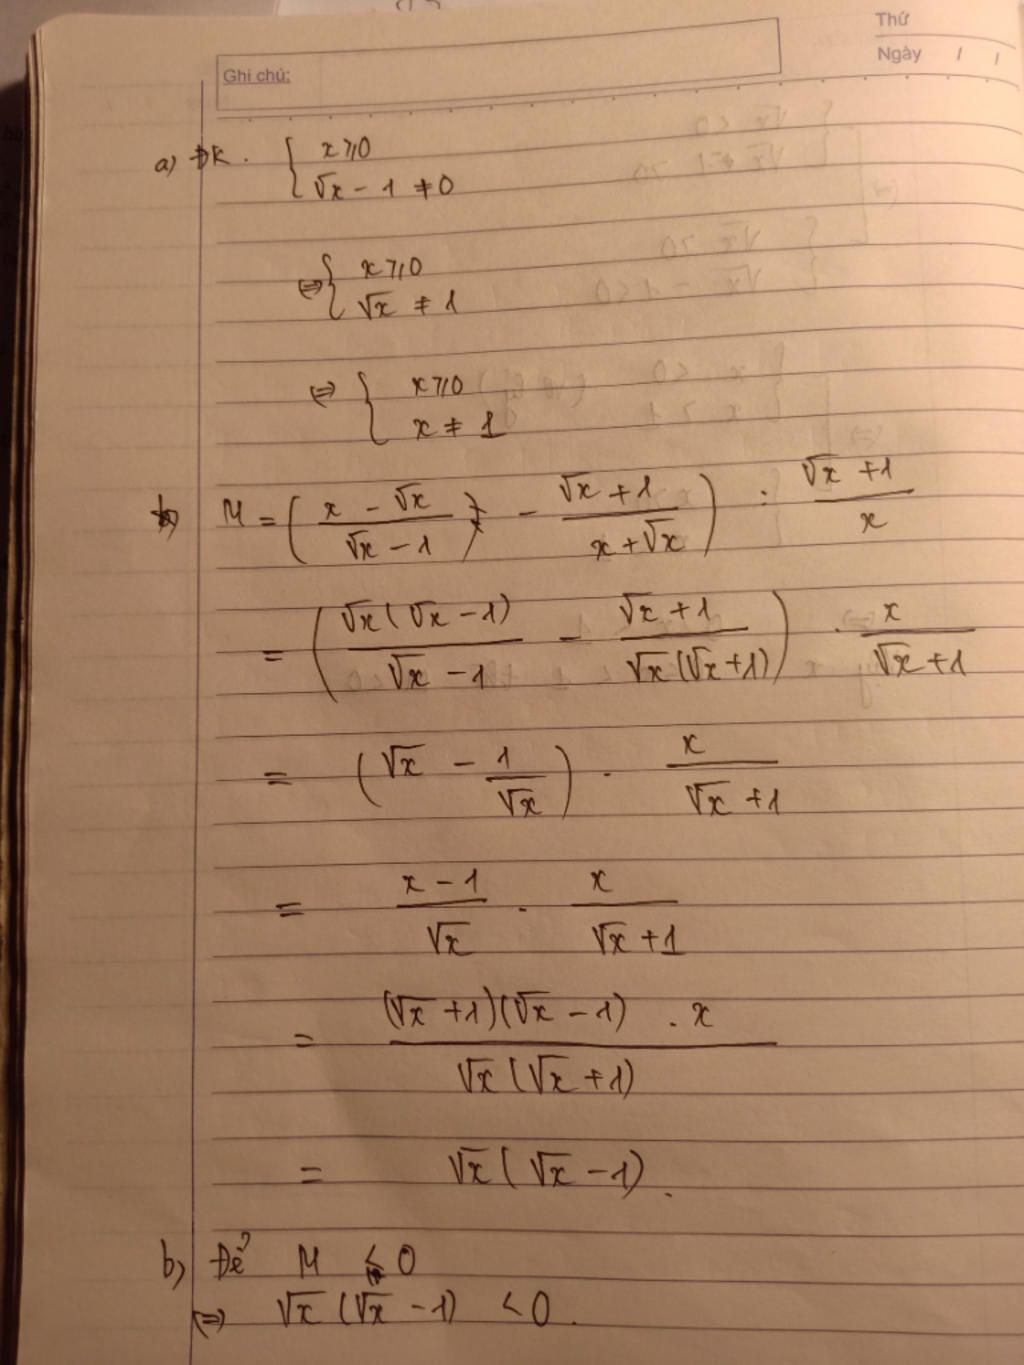 Thứ
Ngày / /
Ghi chú:
a) ĐK. { x ⩾ 0
√x - 1 ≠ 0
⇔ { x ⩾ 0
√x ≠ 1
⇔ { x ⩾ 0
x ≠ 1
M = ( (x - √x)/(√x - 1) - (√x + 1)/(x + √x) ) : (√x + 1)/x
= ( √x(√x - 1)/(√x - 1) - (√x + 1)/(√x(√x + 1)) ) . x/(√x + 1)
= ( √x - 1/√x ) . x/(√x + 1)
= (x - 1)/√x . x/(√x + 1)
= (√x + 1)(√x - 1) . x/(√x(√x + 1))
= √x(√x - 1).
b) Để M < 0
⇔ √x(√x - 1) < 0.